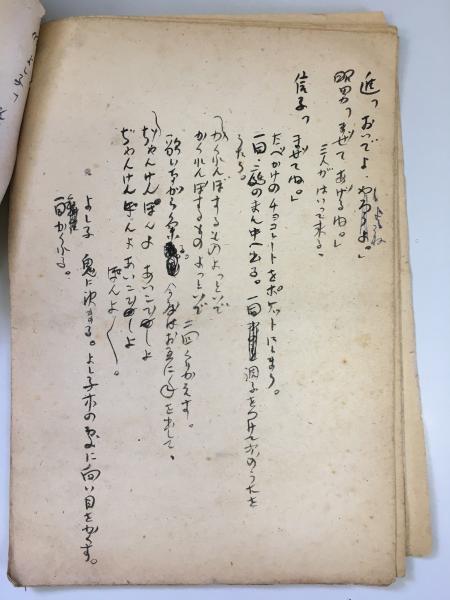 進「おいでよ、やろうよ。」
昭男「まぜてあげるね。」
三人がはいって来る。
信子「まぜてね。」
たべかけのチョコレートをポケットにしまう。
一同、舞台のまん中へ出る。一同調子をつけて次のうたを
うたう。
「かくれんぼするものよっといで
かくれんぼするものよっといで
二回くりかえす。
歌いながら 今度はお互に手を出して、
「ぢゃんけんぽんよ あいこでしよ
ぢゃんけんぽんよ あいこでしよ
ぽんよ」。
よし子 鬼に決まる。よし子木の に向い目をかくす。
一同かくれる。